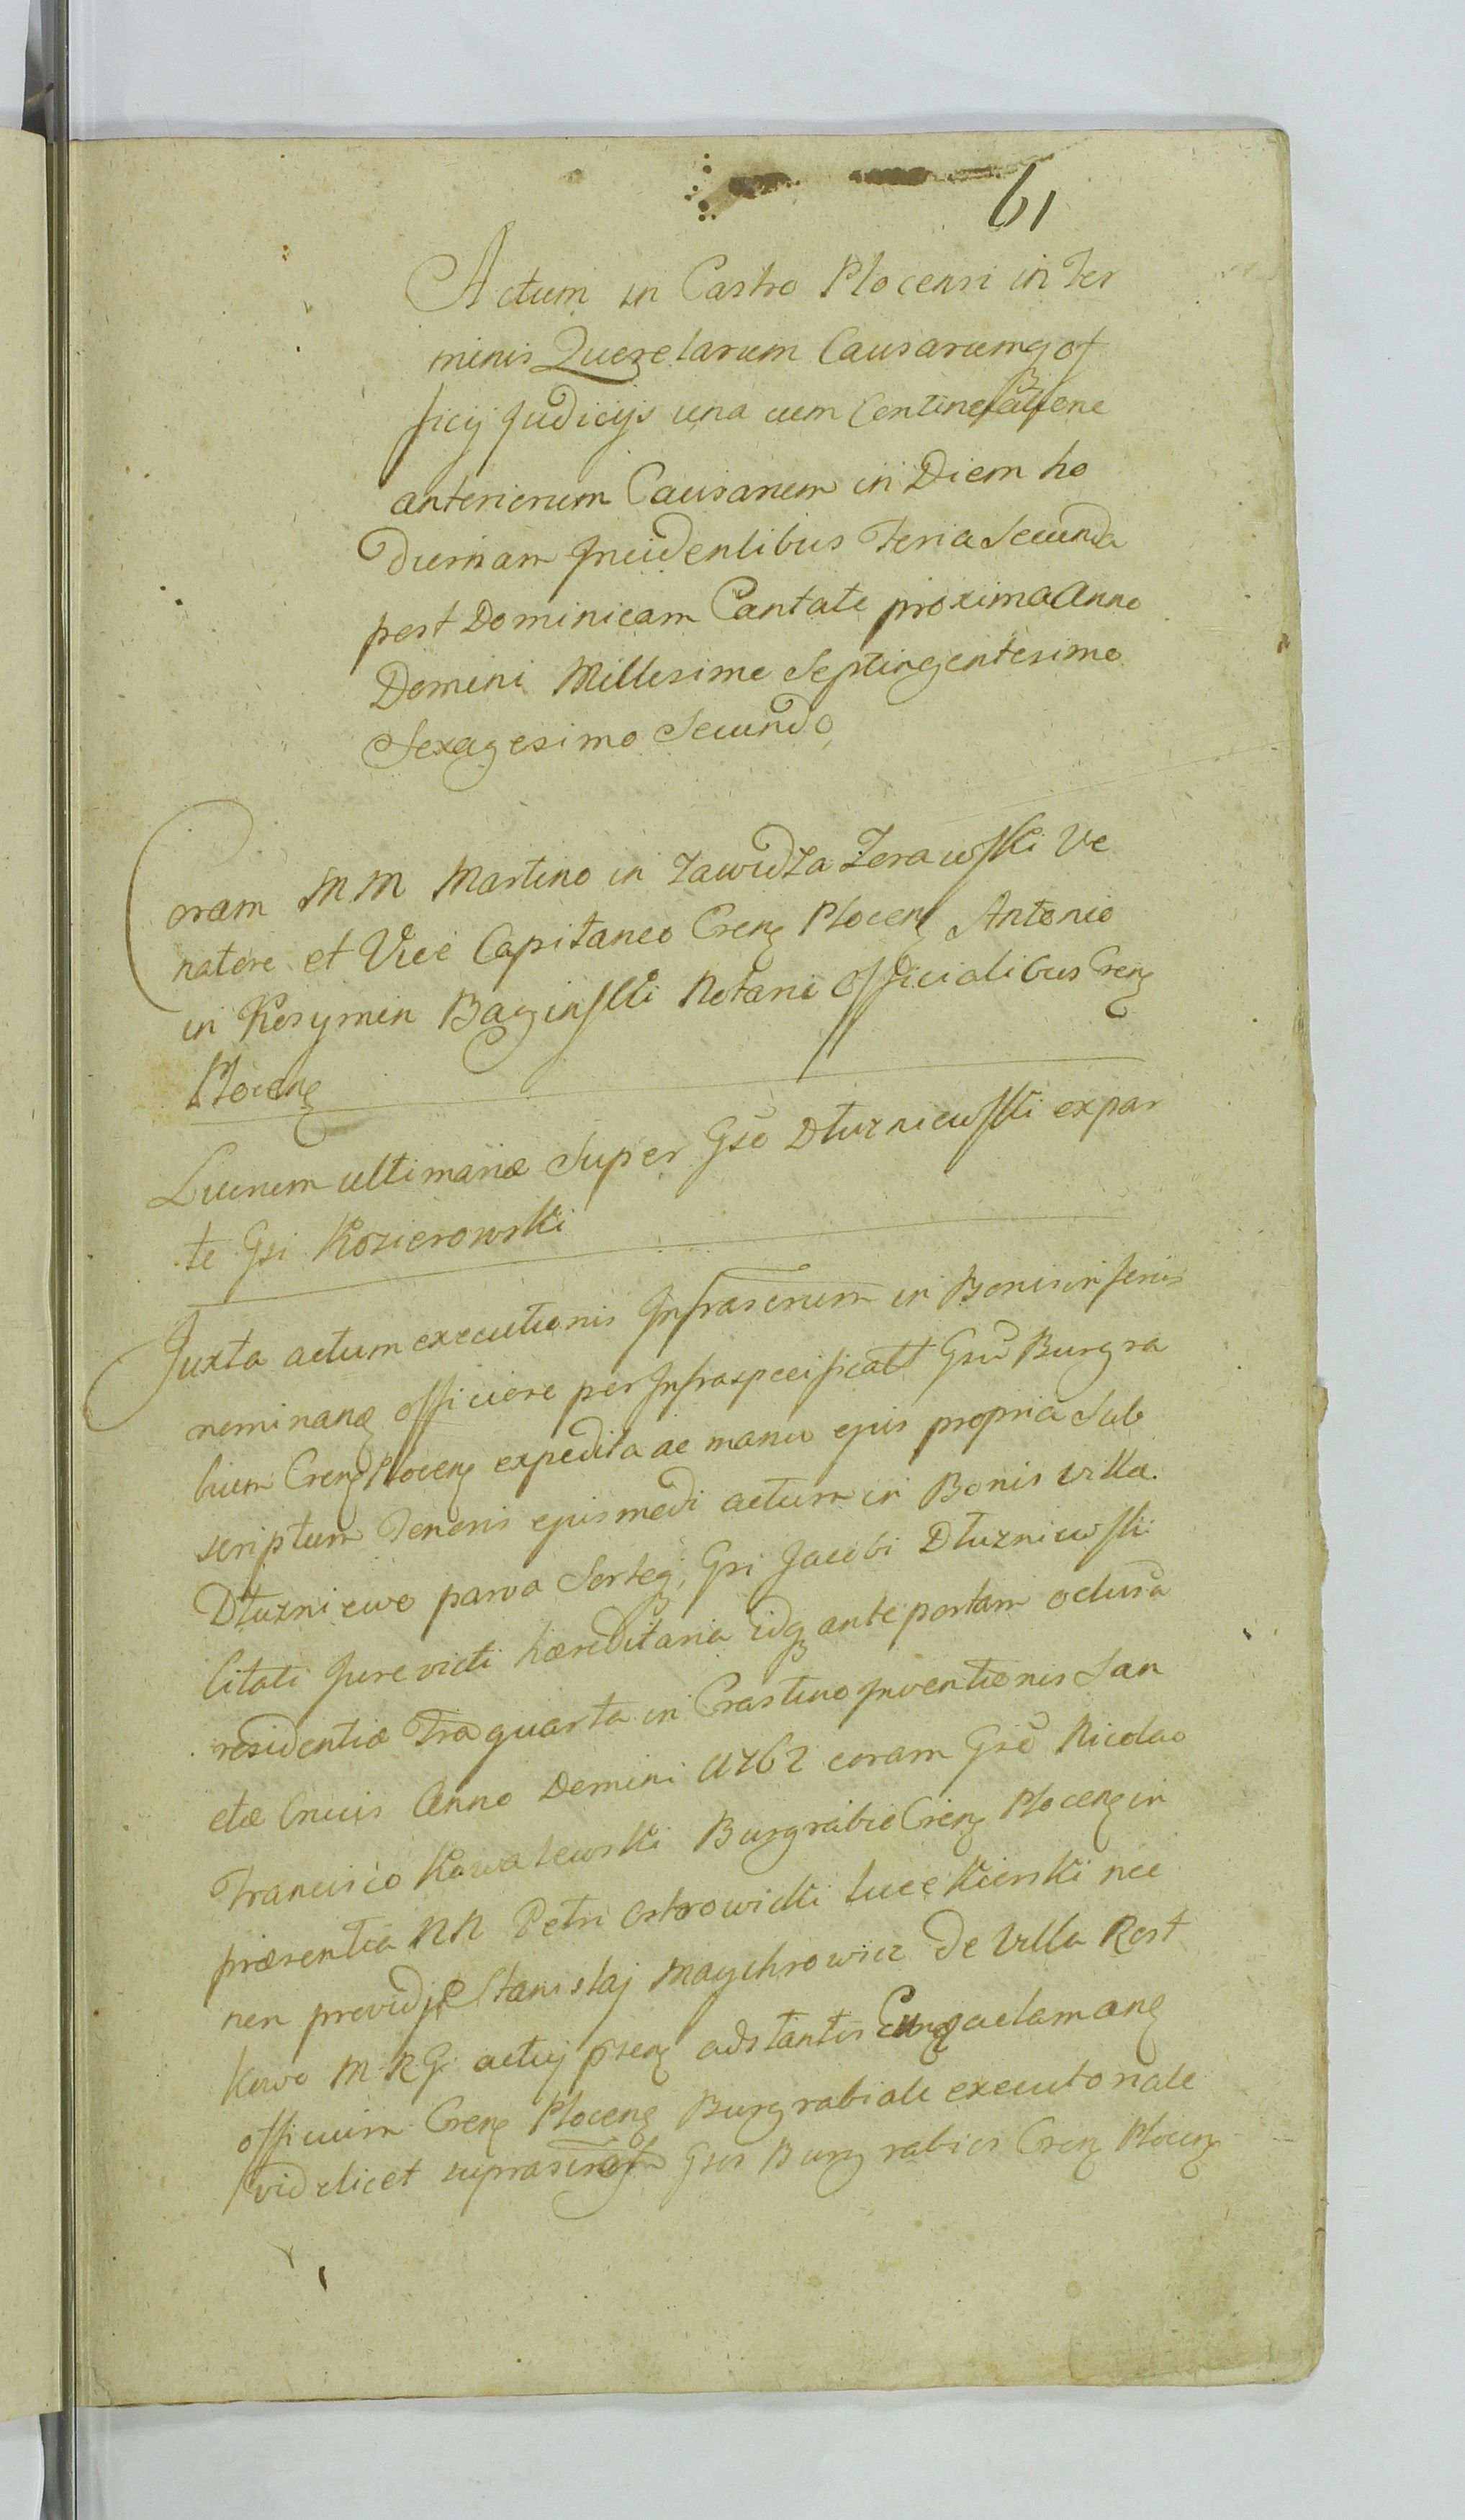 61
Actum in Castro Plocensi in Ter
minis Querelarum Causarumq of
ficij Judicijs una cum Continuatione
anteriorum Causarum in Diem ho
diernam Incidentibus Feria Secunda
post Dominicam Cantate proxima Anno
Domini Millesimo Septingentesimo
Sexagesimo Secundo
Coram MM Martino in Zawidza Zorawski Ve
natore et Vice Capitaneo Cren Plocen Antonio
in Kosymin Baginski Notario Officialibus Cren
Plocen
Lucrum ultimariæ Super Gso Dłuzniewski ex par
te Gsi Kozierowski
Juxta actum executionis Infrascrum in Bonis inferius
nominan officiose per Infraspecificatt Gsū Burgra
bium Cren Plocen expedita ac manu ejus propria Sub
scriptum Tenoris ejusmodi actum in Bonis Villæ
Dłuzniewo parva Sorteq Gsi Jacobi Dłuzniewski
Citati Jure victi hæreditaria idq ante portam oclusa
residentiæ Fra quarta in Crastino Inventionis San
ctæ Crucis Anno Domini 1762 coram Gso Nicolao
Francisco Kowalewski Burgrabio Cren Plocen in
præsentia NN Petri Ostrowicki Lucæ Kierski nec
non providi Stanislaj Maychrowicz de Villa Rost
kowo M R G actuj psen adstantis Cunq aclaman
officium Cren Plocen Burgrabiale executoriale
videlicet suprascr Gsus Burgrabius Cren Plocen